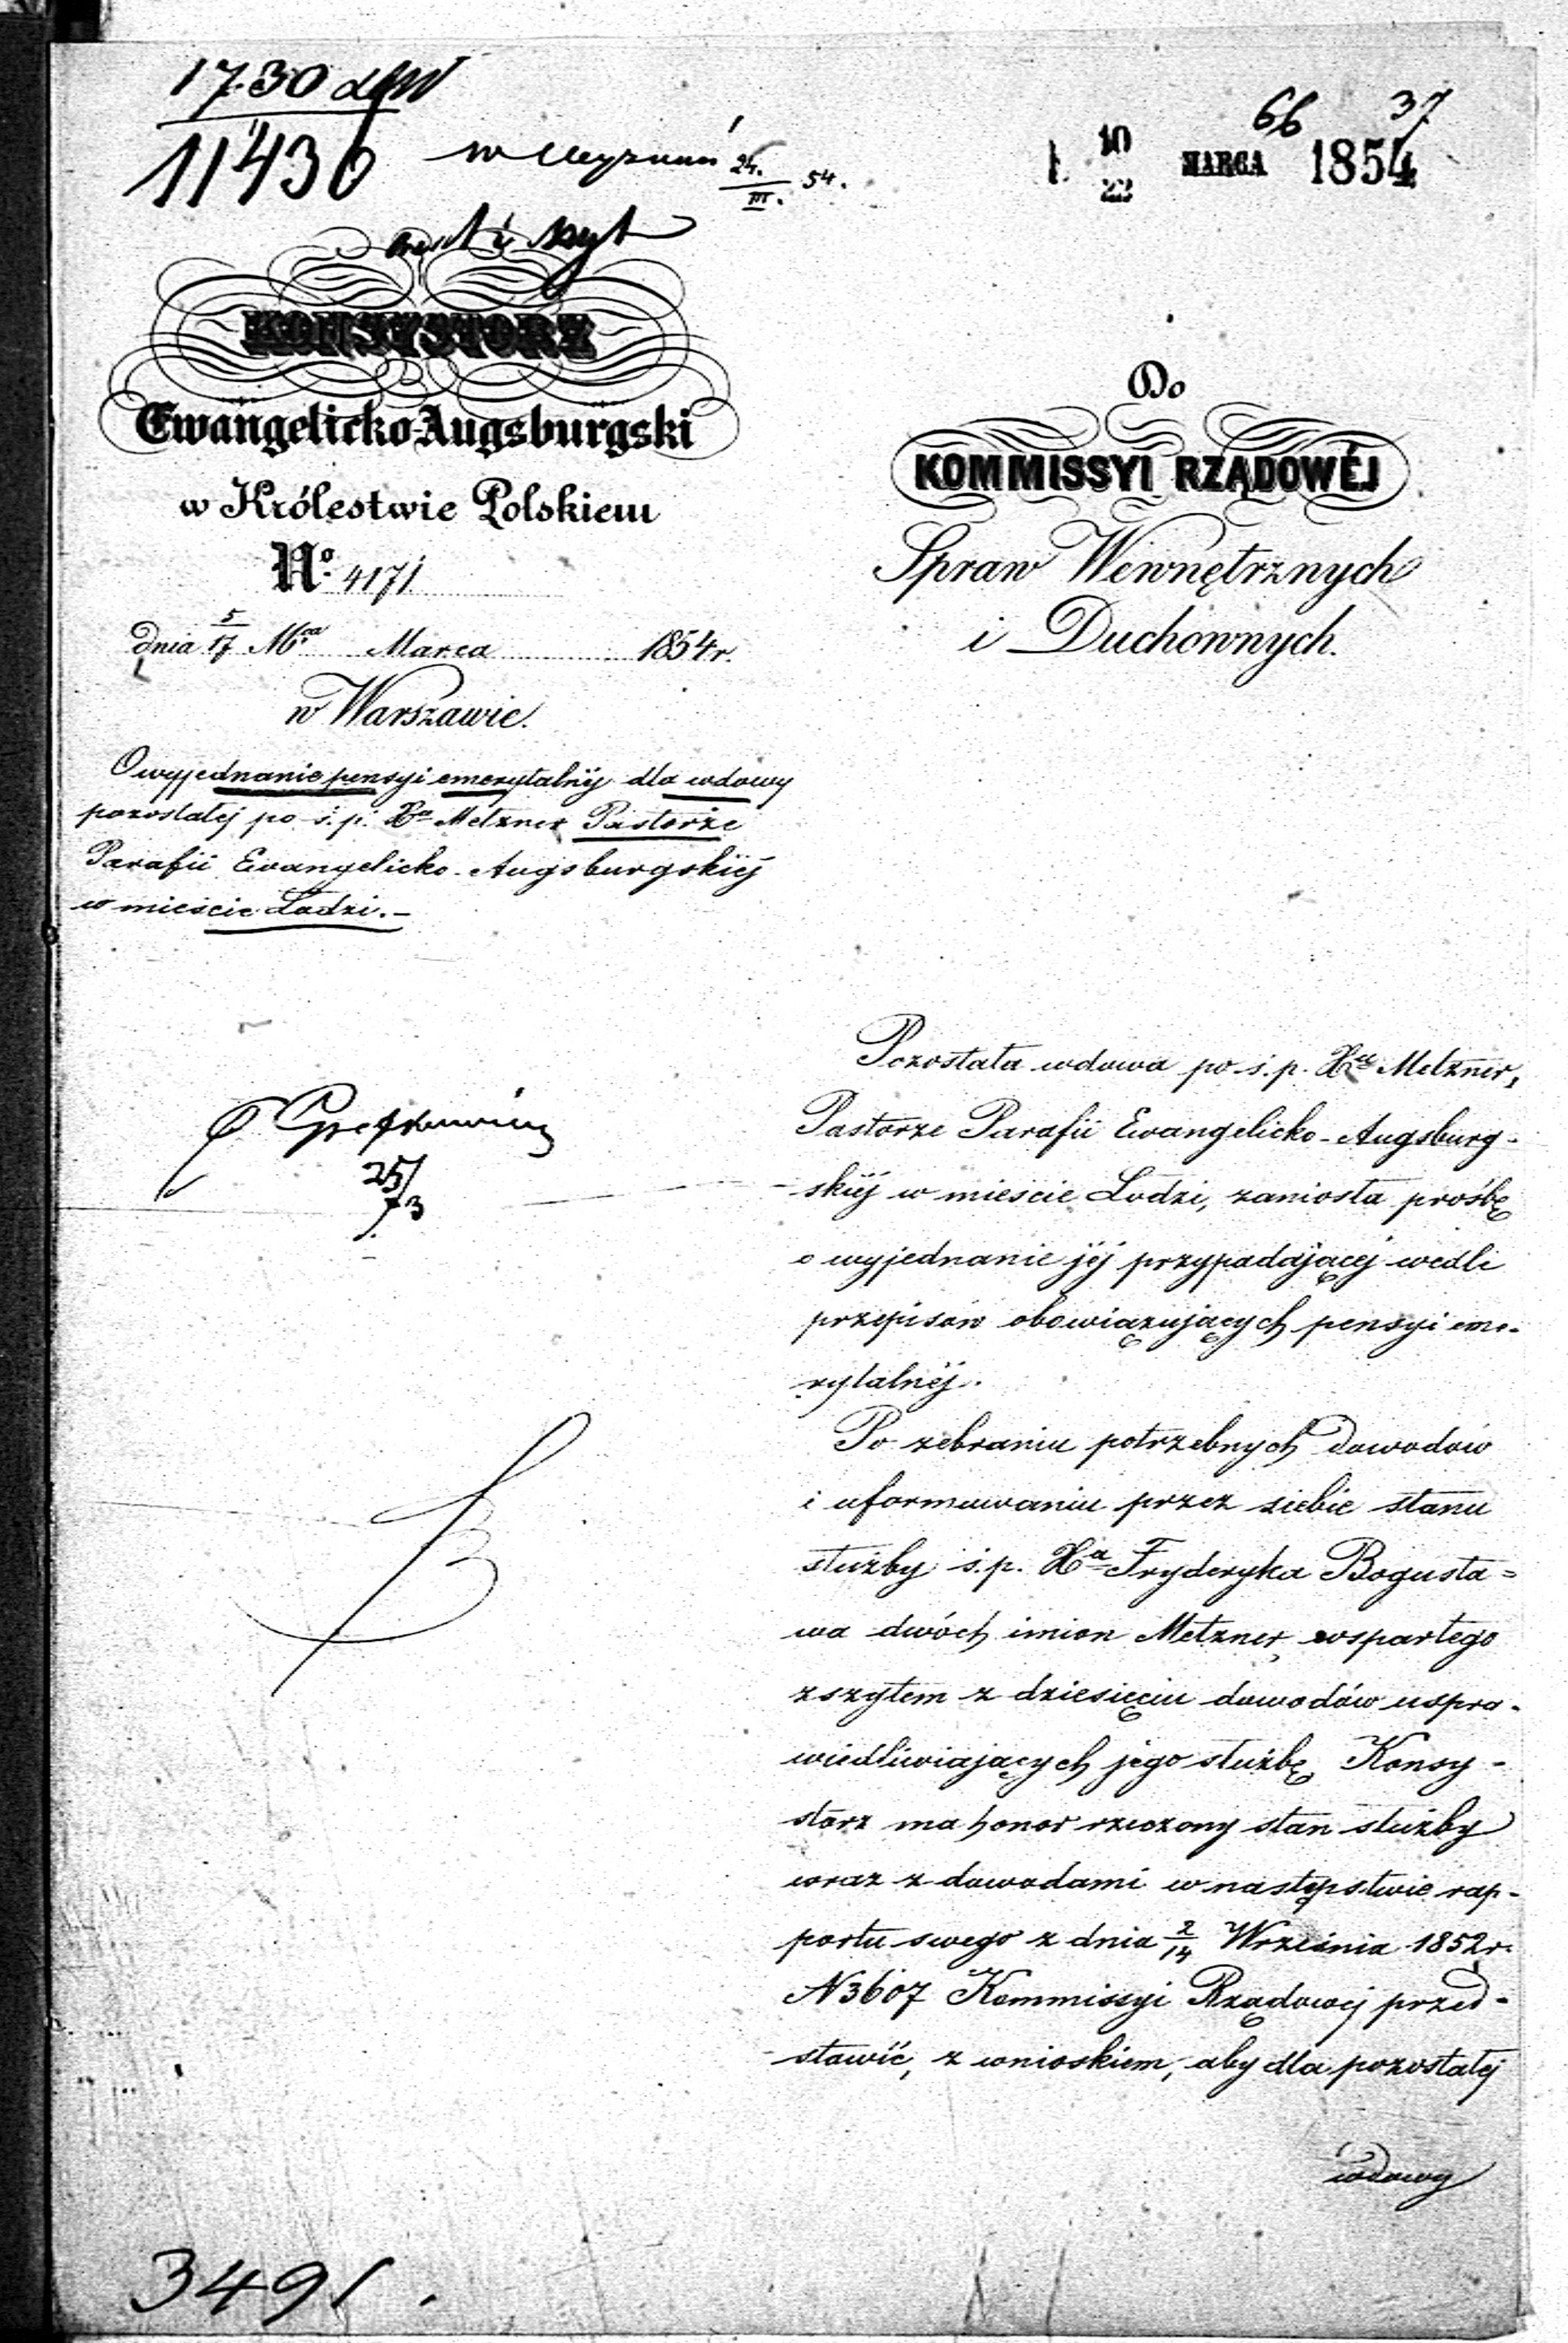 1730
11436
66 37
10
22 MARCA 1854
24.
III. 54.
KONSYSTORZ
Ewangelicko-Augsburgski
w Królestwie Polskiem
No. 4171
dnia 5/17 Mca Marca 1854 r.
w Warszawie.
O wyjednanie pensyi emerytalnéj dla wdowy
pozostałej po ś.p. Xu Metzner Pastorze
Parafii Ewangelicko-Augsburgskiéj
w mieście Łodzi.–
Do
KOMMISSYI RZĄDOWÉJ
Spraw Wewnętrznych
i Duchownych.
25/
3
Pozostała wdowa po ś.p. Xu Metzner,
Pastorze Parafii Ewangelicko-Augsburg-
skiéj w mieście Łodzi, zaniosła prośbę
o wyjednanie jéj przypadającéj wedle
przepisów obowiązujących pensyi eme-
rytalnéj.
Po zebraniu potrzebnych dowodów
i uformowaniu przez siebie stanu
służby ś.p. Xa Fryderyka Bogusła=
wa dwóch imion Metzner, wspartego
zszytem z dziesięciu dowodów uspra-
wiedliwiających jego służbę, Konsy-
storz ma honor rzeczony stan służby
wraz z dowodami w następstwie rap-
portu swego z dnia 2/14 Września 1852 r.
N 3607 Kommissyi Rządowej przed-
stawić, z wnioskiem, aby dla pozostałej
wdowy
3491.